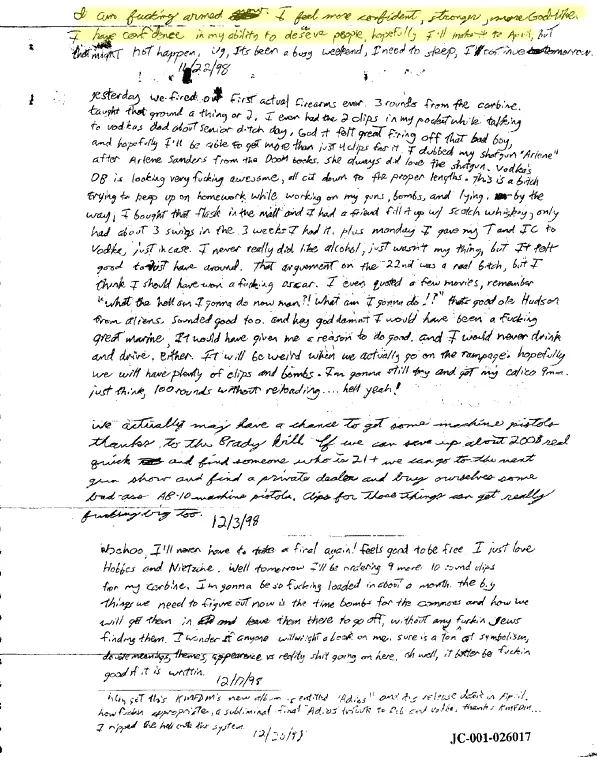 I am fucking armed. I feel more confident, stronger, more God-like.
I have confidence in my ability to deseve people, hopefully I'll make it to April, but
that might not happen, ug, Its been a busy weekend, I need to sleep, I'll continue tomorrow.
11/22/98
yesterday we fired our first actual firearms ever. 3 rounds from the carbine.
taught that ground a thing or 2. I even had the 2 clips in my pocket while talking
to vodkas dad about senior ditch day, God it felt great firing off that bad boy,
and hopefully I'll be able to get more than just 4 clips for it. I dubbed my shotgun "Arlene"
after Arlene Sanders from the Doom books. She always did love the shotgun. Vodka's
DB is looking very fucking awesome, all cut down to the proper lengths. This is a bitch
trying to keep up on homework while working on my guns, bombs, and lying. by the
way, I bought that flask in the mall and I had a friend fill it up w/ scotch whiskey, only
had about 3 swigs in the 3 weeks I had it. plus monday I gave my T and IC to
Vodka, just in case. I never really did like alcohol, just wasn't my thing, but It felt
good to just have around. That arguement on the 22nd was a real bitch, but I
think I should have won a fucking oscar. I even quoted a few movies, remember
"what the hell am I gonna do now man?! what am I gonna do!?" thats good ole Hudson
from aliens. Sounded good too. and hey god damnit I would have been a fucking
great marine, It would have given me a reason to do good. and I would never drink
and drive, either. It will be weird when we actually go on the rampage. hopefully
we will have plenty of clips and bombs. I'm gonna still try and get my calico 9mm.
just think, 100 rounds without reloading.... hell yeah!
we actually may have a chance to get some machine pistols
thanks to the Brady bill. If we can save up about 200$ real
quick and find someone who is 21+ we can go to the next
gun show and find a private dealer and buy ourselves some
bad-ass AB-10 machine pistols. clips for those things can get really
fucking big too. 12/3/98
Wohoo, I'll never have to take a final again! feels good to be free I just love
Hobbes and Nietzche. Well tomorrow I'll be ordering 9 more 10 round clips
for my carbine. I'm gonna be so fucking loaded in about a month. the big
things we need to figure out now is the time bombs for the commons and how we
will get them in and leave them there to go off, without any fuckin Jews
finding them. I wonder if anyone will write a book on me. sure is a ton of symbolism,
double meanings, themes, appearance vs reality shit going on here. oh well, it better be fuckin
good if it is writtin. 12/17/98
get this KMFDM's new album is entitled "Adios" and its release date is in April.
how fuckin appropriate, a subliminal final "Adios" tribute to Reb and Vodka. thanks KMFDM...
I ripped the hell outa the system 12/20/98
JC-001-026017